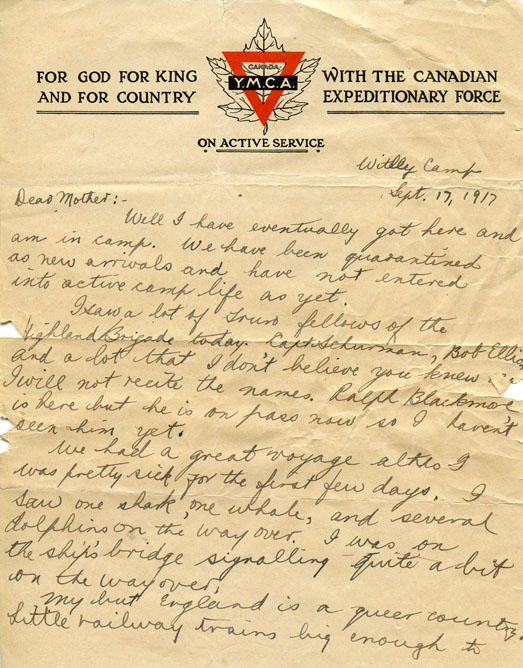 FOR GOD FOR KING
AND FOR COUNTRY
CANADA
Y.M.C.A.
WITH THE CANADIAN
EXPEDITIONARY FORCE
ON ACTIVE SERVICE
Witley Camp
Sept. 17, 1917
Dear Mother:-
Well I have eventually got here and
am in camp. We have been quarantined
as new arrivals and have not entered
into active camp life as yet.
I saw a lot of Truro fellows of the
Highland Brigade today. Capt. Schurman, Bob Ellis
and a lot that I don't believe you knew so
I will not recite the names. Ralph Blackmore
is here but he is on pass now so I haven't
seen him yet.
We had a great voyage altho I
was pretty sick for the first few days. I
saw one shark, one whale, and several
dolphins on the way over. I was on
the ship's bridge signalling quite a bit
on the way over.
My but England is a queer country.
Little railway trains big enough to